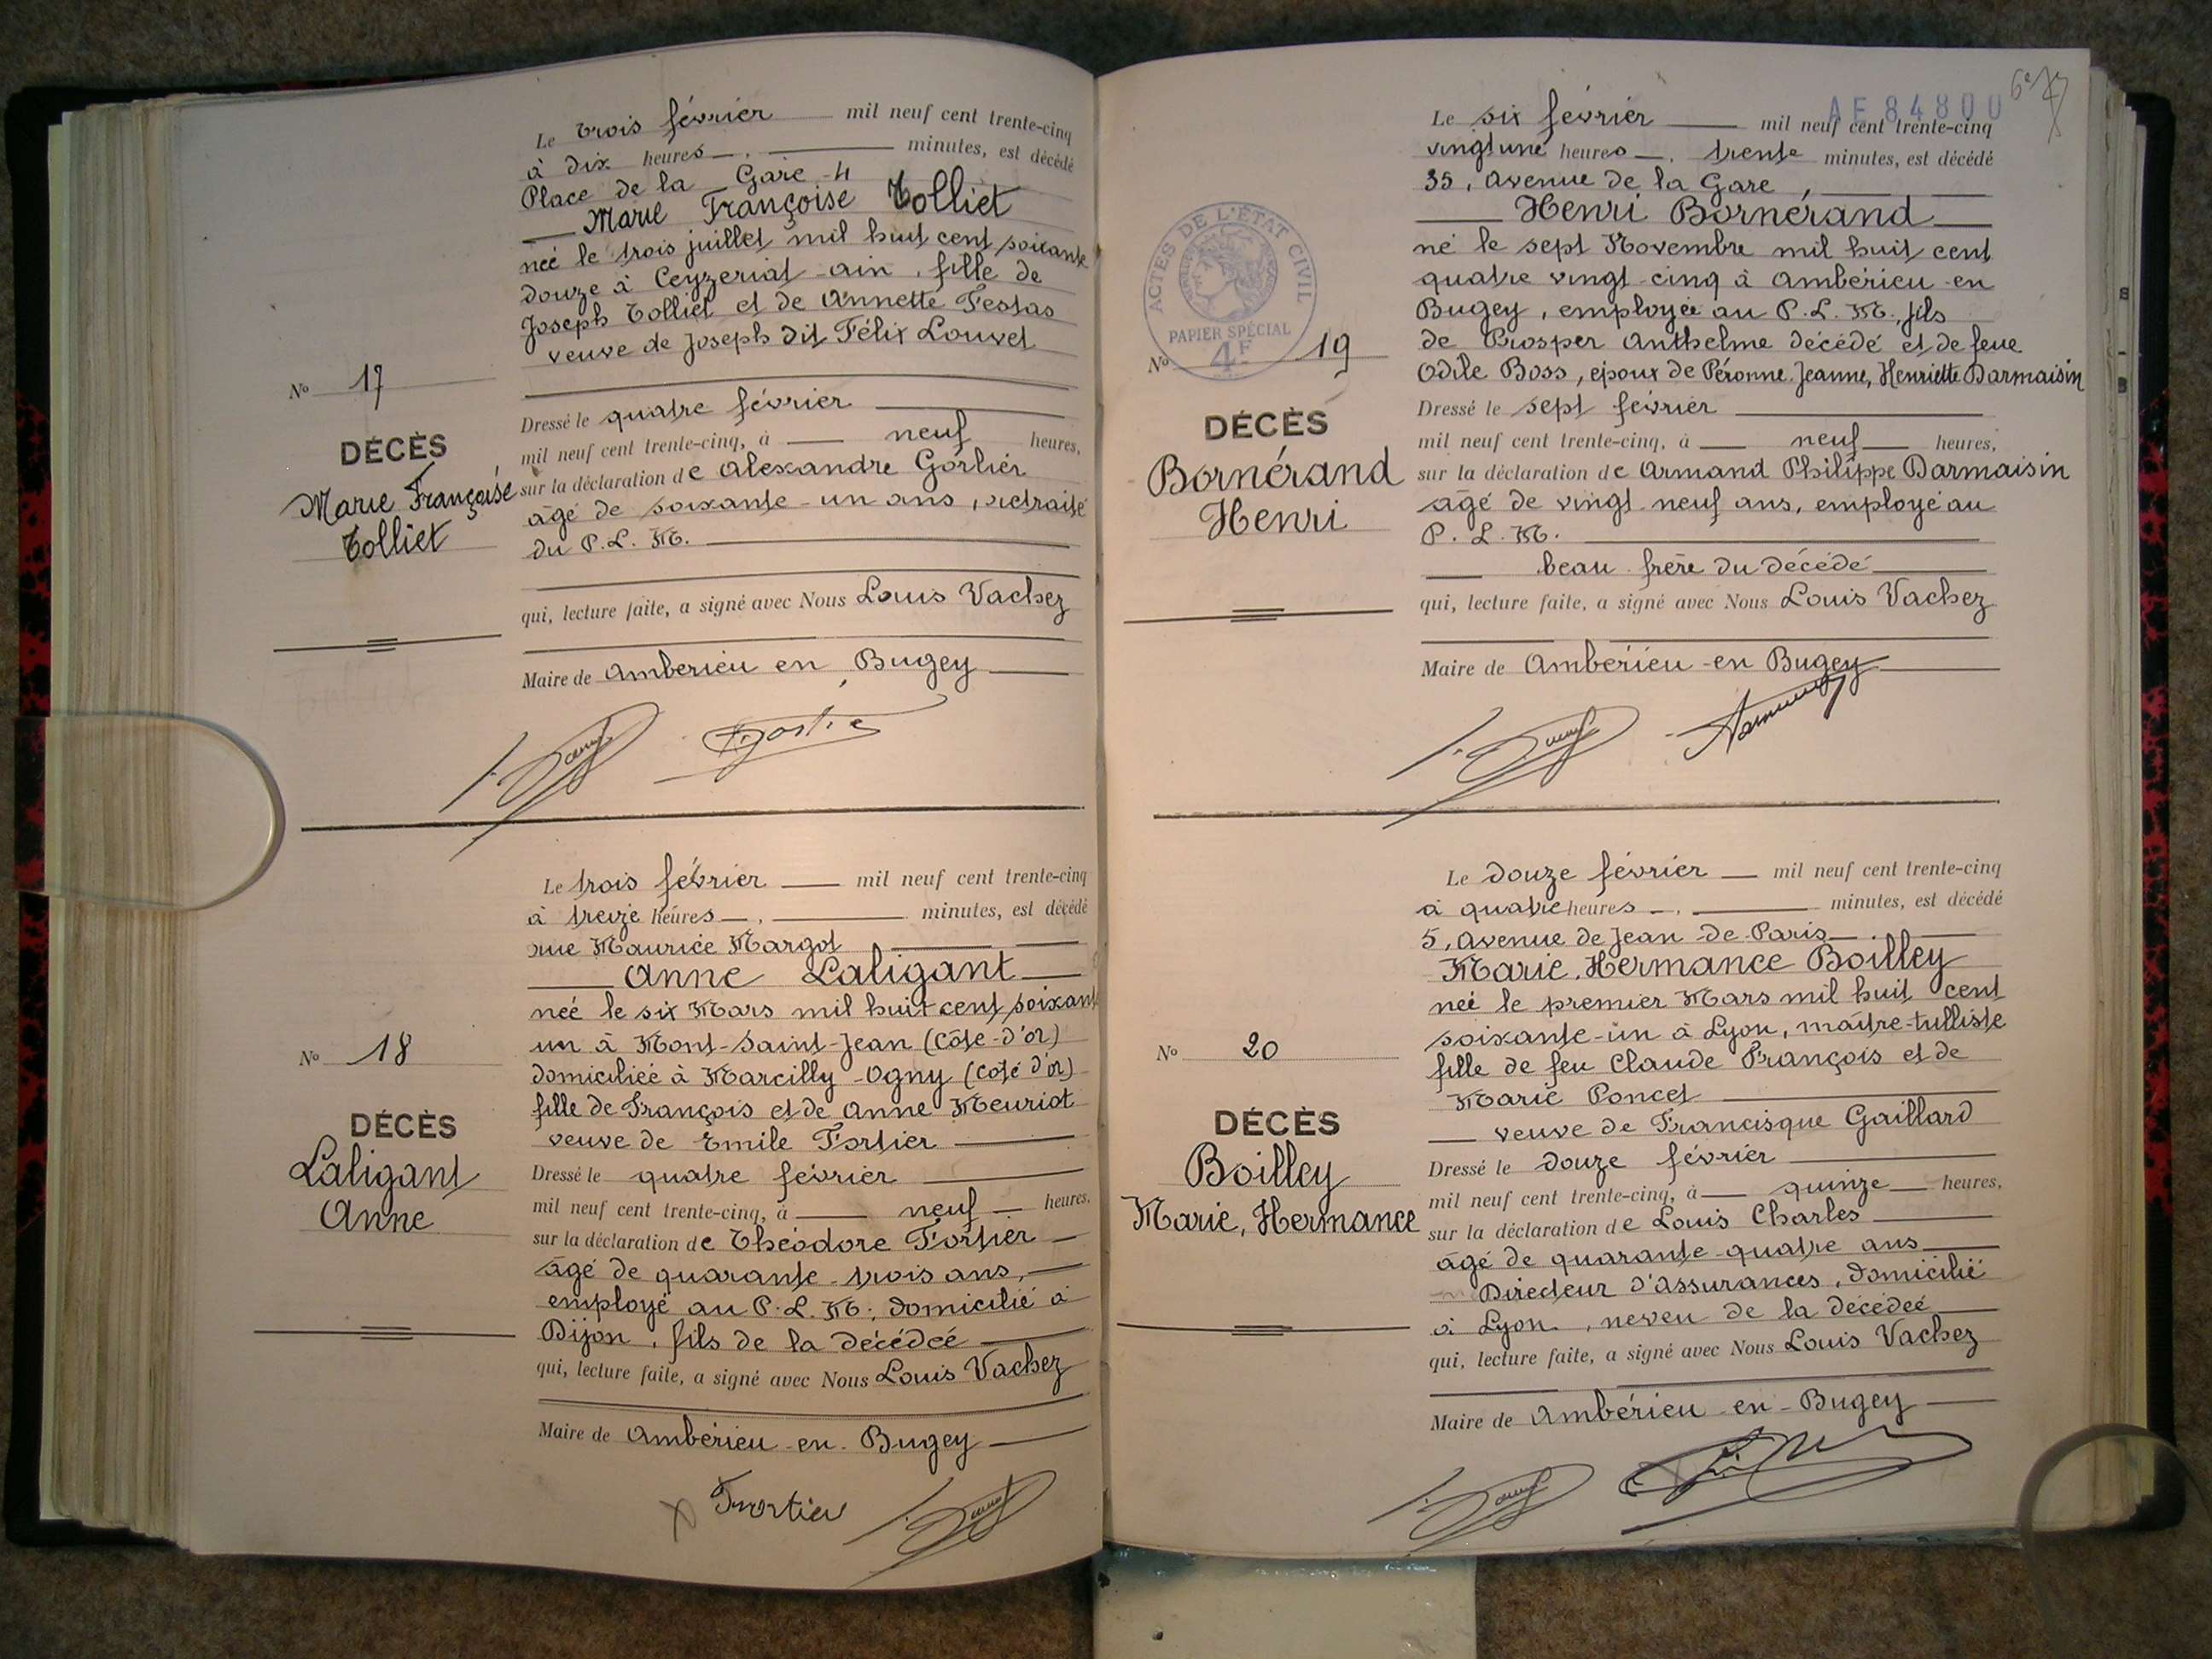 Le trois février mil neuf cent trente-cinq
à dix heures minutes, est décédé
Place de la Gare 4
Marie Françoise Tolliet
née le trois juillet mil huit cent soixante
douze à Ceyzeriat - ain, fille de
Joseph Tolliet et de Annette Testas
veuve de Joseph dit Félix Louvet
No 17
DÉCÈS
Marie Françoise
Tolliet
Dressé le quatre février
mil neuf cent trente-cinq, à neuf heures,
sur la déclaration de Alexandre Gorlier
âgé de soixante-un ans, retraité
du P.L.M.
qui, lecture faite, a signé avec Nous Louis Vachez
Maire de Amberieu en Bugey
Le trois février mil neuf cent trente-cinq
à treize heures, minutes, est décédé
rue Maurice Margot
Anne Laligant
née le six Mars mil huit cent soixante
un à Mont-Saint-Jean (Côte-d'or)
domiciliée à Marcilly-Ogny (Coté d'or)
fille de François et de Anne Meuriot
veuve de Emile Fortier
No 18
DÉCÈS
Laligant
Anne
Dressé le quatre février
mil neuf cent trente-cinq, à neuf heures,
sur la déclaration de Théodore Fortier
âgé de quarante-trois ans,
employé au P.L.M. domicilié à
Dijon, fils de la décédée
qui, lecture faite, a signé avec Nous Louis Vachez
Maire de Ambérieu-en-Bugey
Fortier
AE84800
Le six février mil neuf cent trente-cinq
vingt une heures, trente minutes, est décédé
35, Avenue de la Gare,
Henri Bornérand
né le sept Novembre mil huit cent
quatre vingt-cinq à Ambérieu-en
Bugey, employée au P.L.M., fils
de Prosper Anthelme décédé et de feue
Odile Boss, époux de Péronne Jeanne, Henriette Darmaisin
ACTES DE L'ÉTAT CIVIL
PAPIER SPÉCIAL
4F
No 19
DÉCÈS
Bornérand
Henri
Dressé le sept février
mil neuf cent trente-cinq, à neuf heures,
sur la déclaration de Armand Philippe Darmaisin
âgé de vingt-neuf ans, employé au
P.L.M.
beau frère du décédé
qui, lecture faite, a signé avec Nous Louis Vachez
Maire de Ambérieu-en Bugey
Le douze février mil neuf cent trente-cinq
à quatre heures, minutes, est décédé
5, Avenue de Jean-de-Paris
Marie, Hermance Boilley
née le premier Mars mil huit cent
soixante-un à Lyon, maître-tulliste
fille de feu Claude François et de
Marie Poncet
veuve de Francisque Gaillard
No 20
DÉCÈS
Boilley
Marie, Hermance
Dressé le douze février
mil neuf cent trente-cinq, à quinze heures,
sur la déclaration de Louis Charles
âgé de quarante-quatre ans
Directeur d'assurances, domicilié
à Lyon, neveu de la décédée
qui, lecture faite, a signé avec Nous Louis Vachez
Maire de Ambérieu-en-Bugey